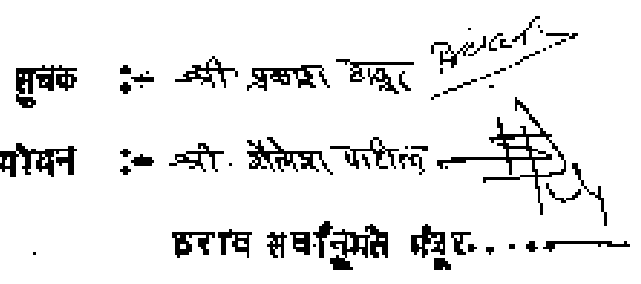 सुचक :- श्री प्रकाश ठाकूर
मोदन :- श्री. शैलेश पाटील.
ठराव सर्वानुमते मंजूर.....